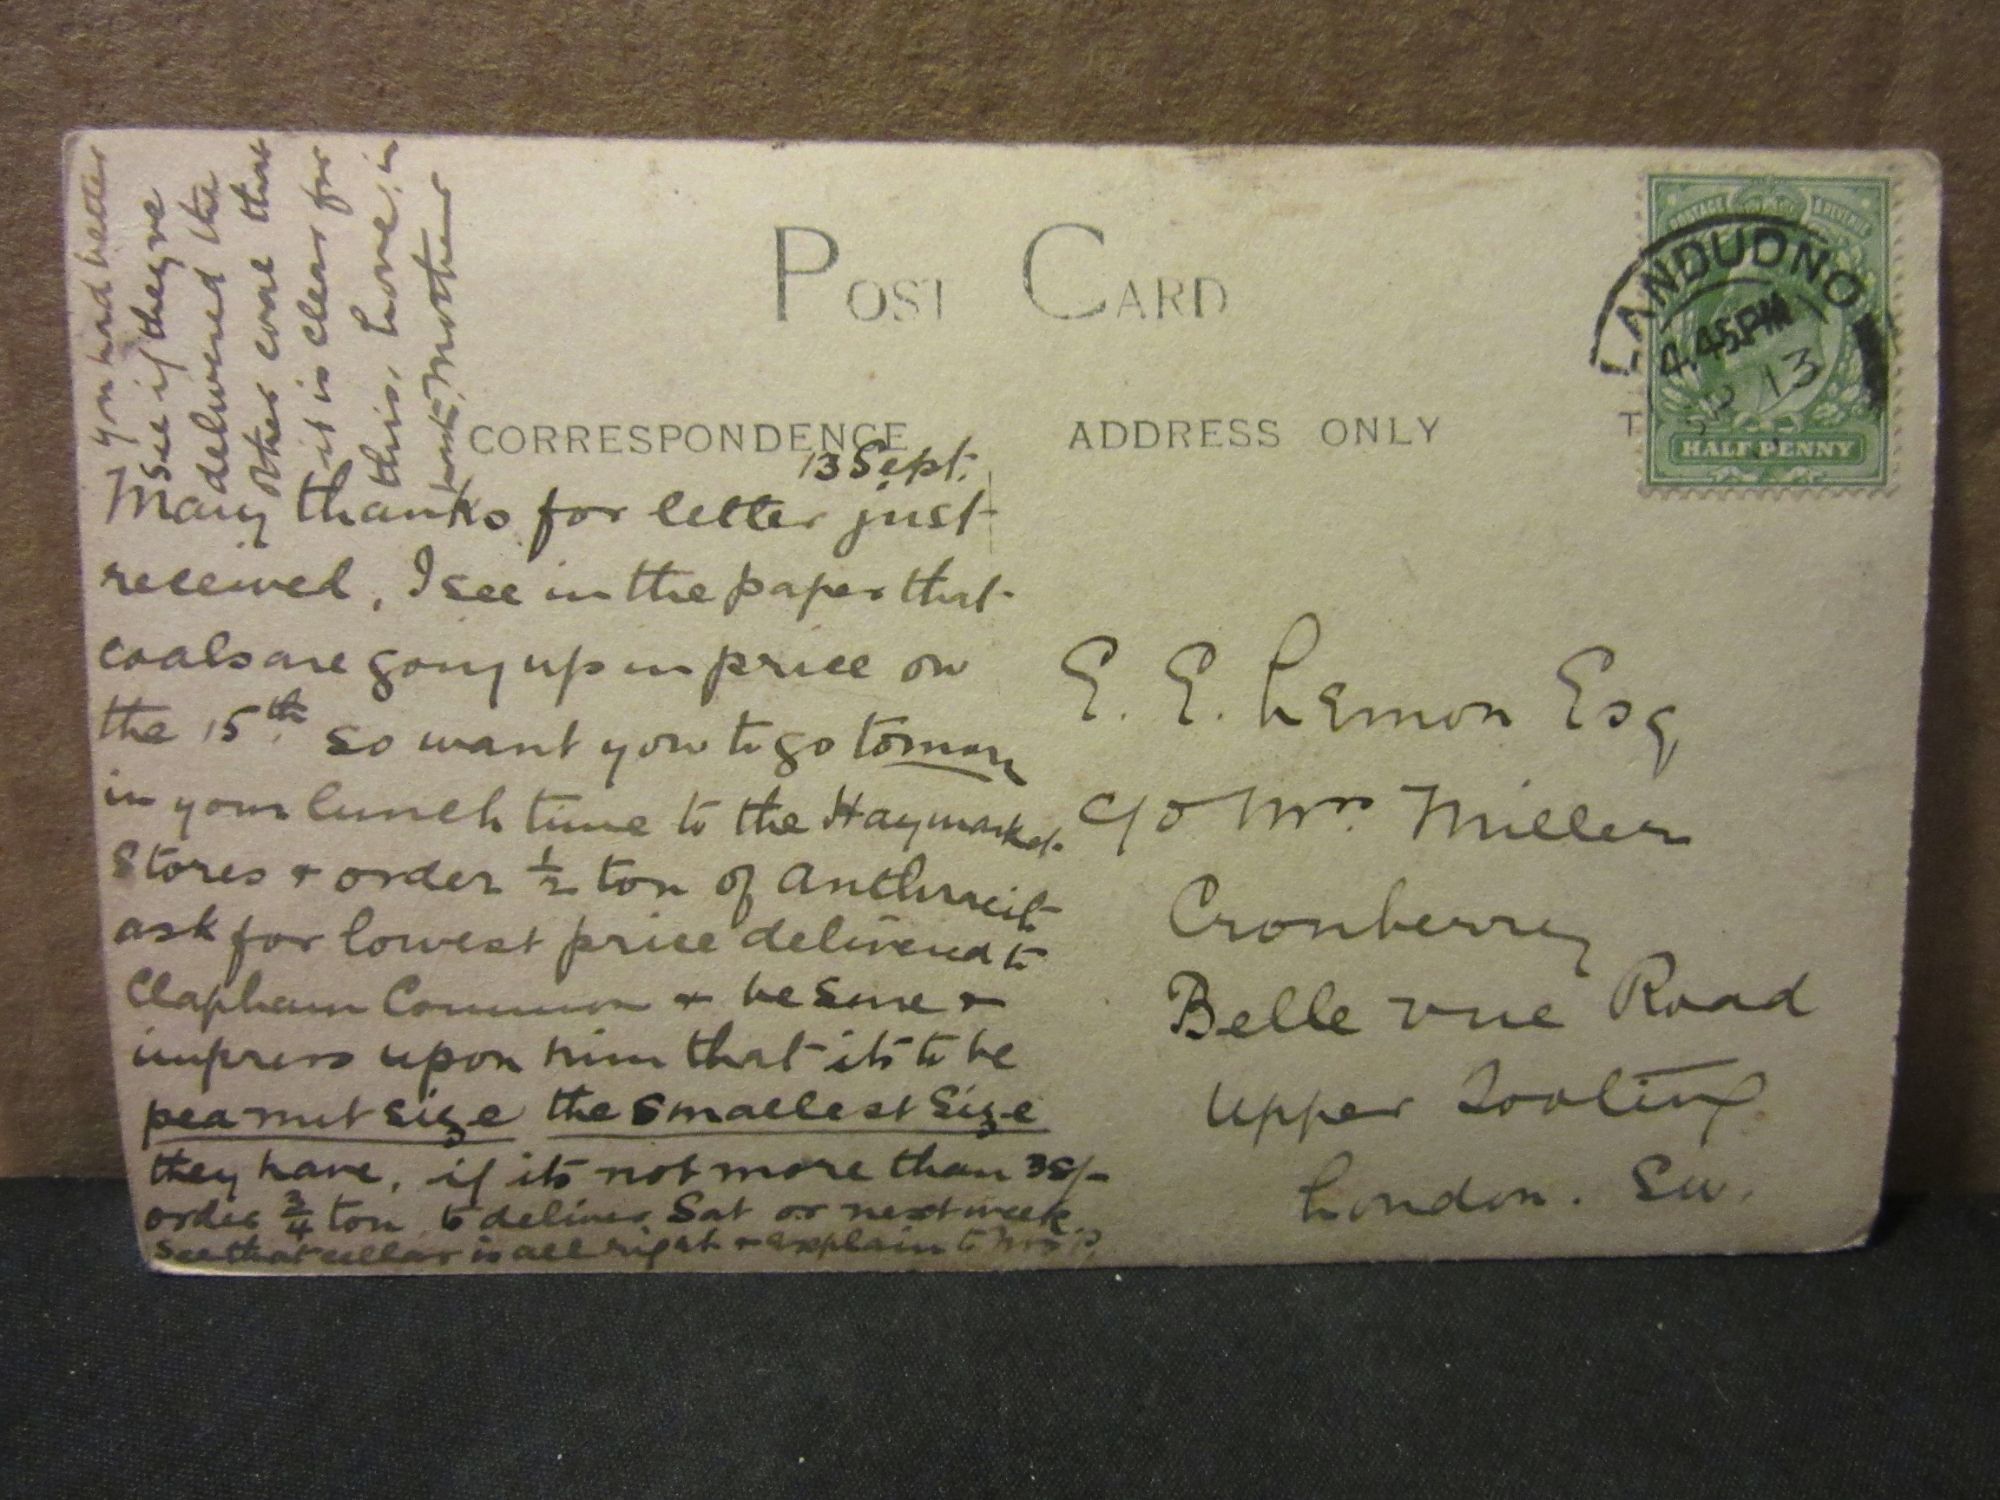 POST CARD
CORRESPONDENCE
ADDRESS ONLY
POSTAGE & REVENUE
LLANDUDNO
4.45PM
SP 13
HALF PENNY
13 Sept.
Many thanks for letter just
received, I see in the paper that
coals are going up in price on
the 15th so want you to go tomorr
in your lunch time to the Haymarket
Stores + order ½ ton of anthracit
ask for lowest price delivered to
Clapham Common + be sure +
impress upon him that its to be
pea nut size the smallest size
they have, if its not more than 38/-
order ¾ ton to deliver Sat or next week
see that cellar is all right + explain to
you had better
see if they've
delivered the
other coal that
it is clear for
this, love in
haste, Mother
E. E. Lemon Esq
c/o Mrs. Miller
Cronberry
Belle vue Road
Upper Tooting
London. SW.